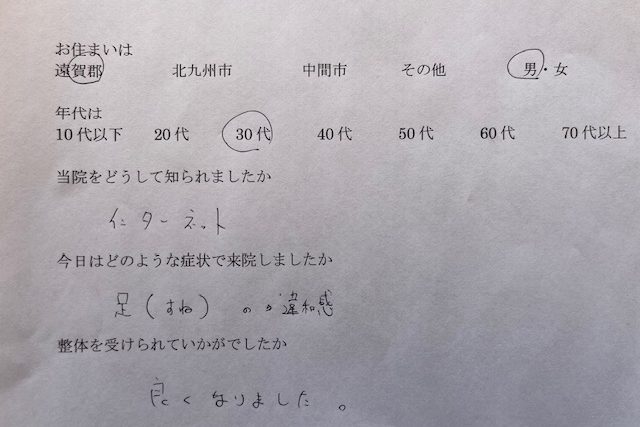 お住まいは
遠賀郡 北九州市 中間市 その他 男・女
年代は
10代以下 20代 30代 40代 50代 60代 70代以上
当院をどうして知られましたか
インターネット
今日はどのような症状で来院しましたか
足(すね) の 違和感
整体を受けられていかがでしたか
良くなりました。